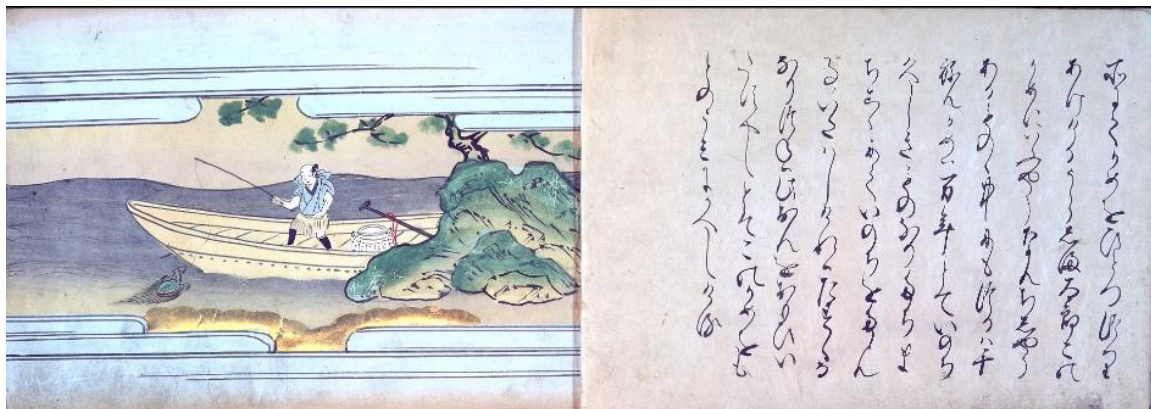 所にてかめをひとつつり
あけけるうらしま太郎この
かめにいふやうなんちしやう
あるものゝ中にもつるハ千
ねんかめハ万年とていのち
久しきものなりたちま
ちこゝにていのちをたゝん
事いたハしけれハたすくる
なりつねは此おんをおもひい
たすへしとてこのかめをも
との
かへしける